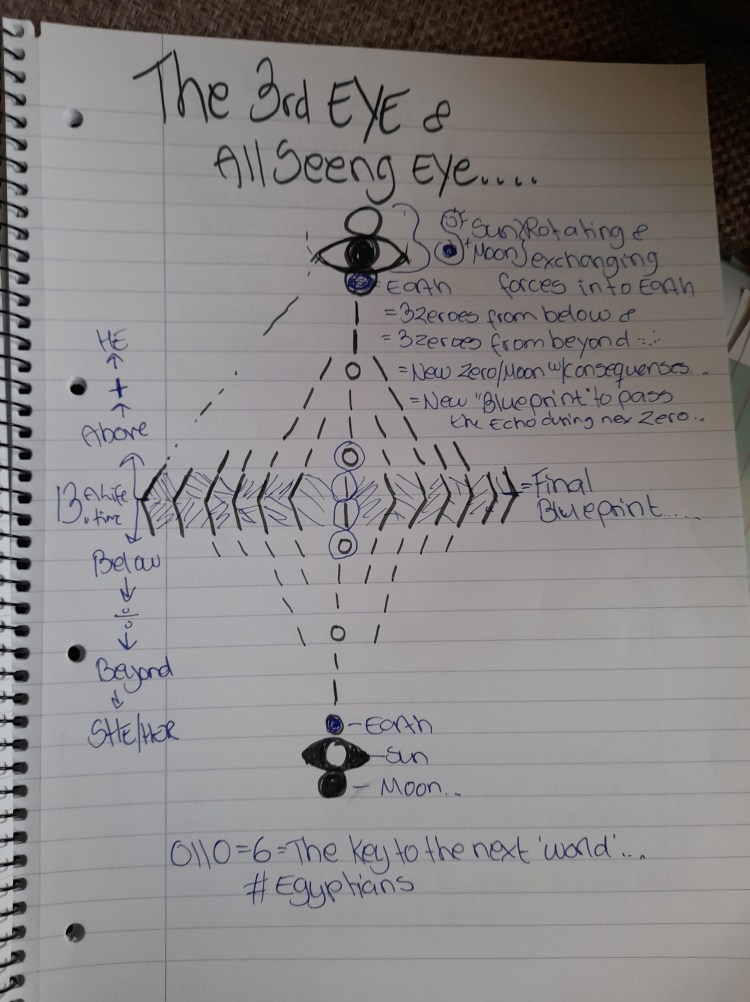 The 3rd EYE &
All Seeng Eye....
Sun} Rotating &
Moon} exchanging
forces into Earth
Earth
= 3 zeroes from below &
= 3 zeroes from beyond
= New Zero/Moon w/consequenses..
= New "Blueprint" to pass
the Echo during new Zero..
HE
↑
+
↑
Above
13. A life
time
Below
↓
÷
↓
Beyond
↓
SHE/HER
= Final
Blueprint.....
- Earth
- Sun
- Moon..
0110=6=The key to the next 'world'...
# Egyptians